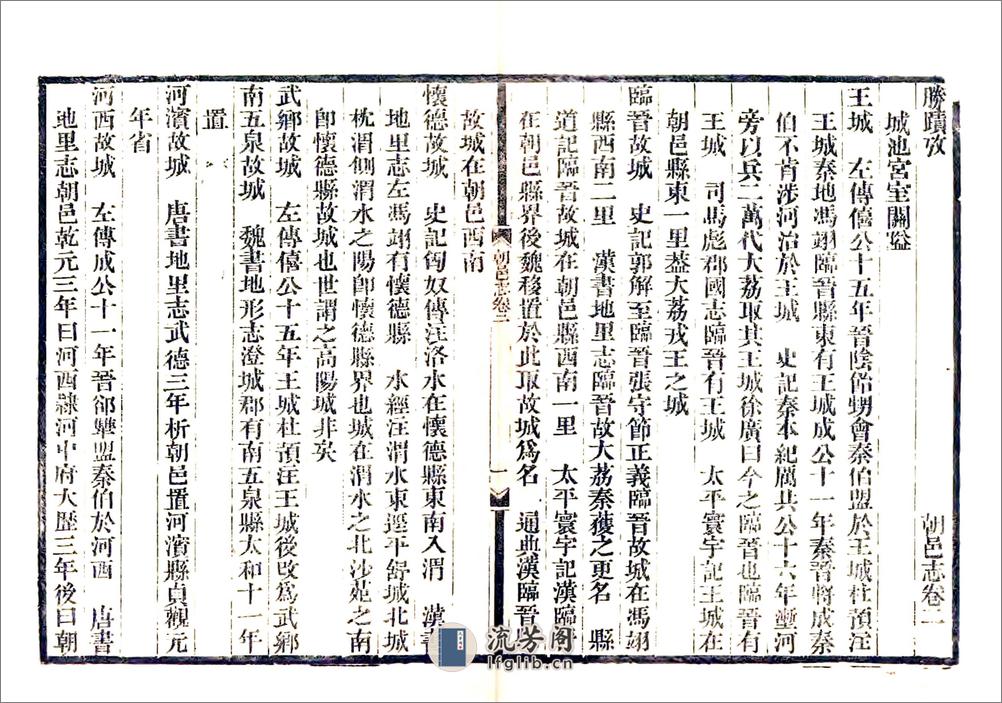 勝蹟攷 朝邑志卷二
城池宮室關隘
王城 左傳僖公十五年晉陰飴甥會秦伯盟於王城杜預注
王城秦地馮翊臨晉縣東有王城成公十一年秦晉將成秦
伯不肯涉河治於王城 史記秦本紀厲共公十六年壍河
旁以兵二萬伐大荔取其王城徐廣曰今之臨晉也臨晉有
王城 司馬彪郡國志臨晉有王城 太平寰宇記王城在
朝邑縣東一里葢大荔戎王之城
臨晉故城 史記郭解至臨晉張守節正義臨晉故城在馮翊
縣西南二里 漢書地里志臨晉故大荔秦獲之更名 縣
道記臨晉故城在朝邑縣西南一里 太平寰宇記漢臨晉
在朝邑縣界後魏移置於此取故城爲名 通典漢臨晉縣
故城在朝邑西南
朝邑志卷二
一
懷德故城 史記匈奴傳注洛水在懷德縣東南入渭 漢書
地里志左馮翊有懷德縣 水經注渭水東逕平舒城北城
枕渭側渭水之陽卽懷德縣界也城在渭水之北沙苑之南
卽懷德縣故城也世謂之高陽城非矣
武鄉故城 左傳僖公十五年王城杜預注王城後改爲武鄉
南五泉故城 魏書地形志澄城郡有南五泉縣太和十一年
置
河濱故城 唐書地里志武德三年析朝邑置河濱縣貞觀元
年省
河西故城 左傳成公十一年晉郤犫盟秦伯於河西 唐書
地里志朝邑乾元三年曰河西隸河中府大歷三年後曰朝
流芳阁
lfglib.cn